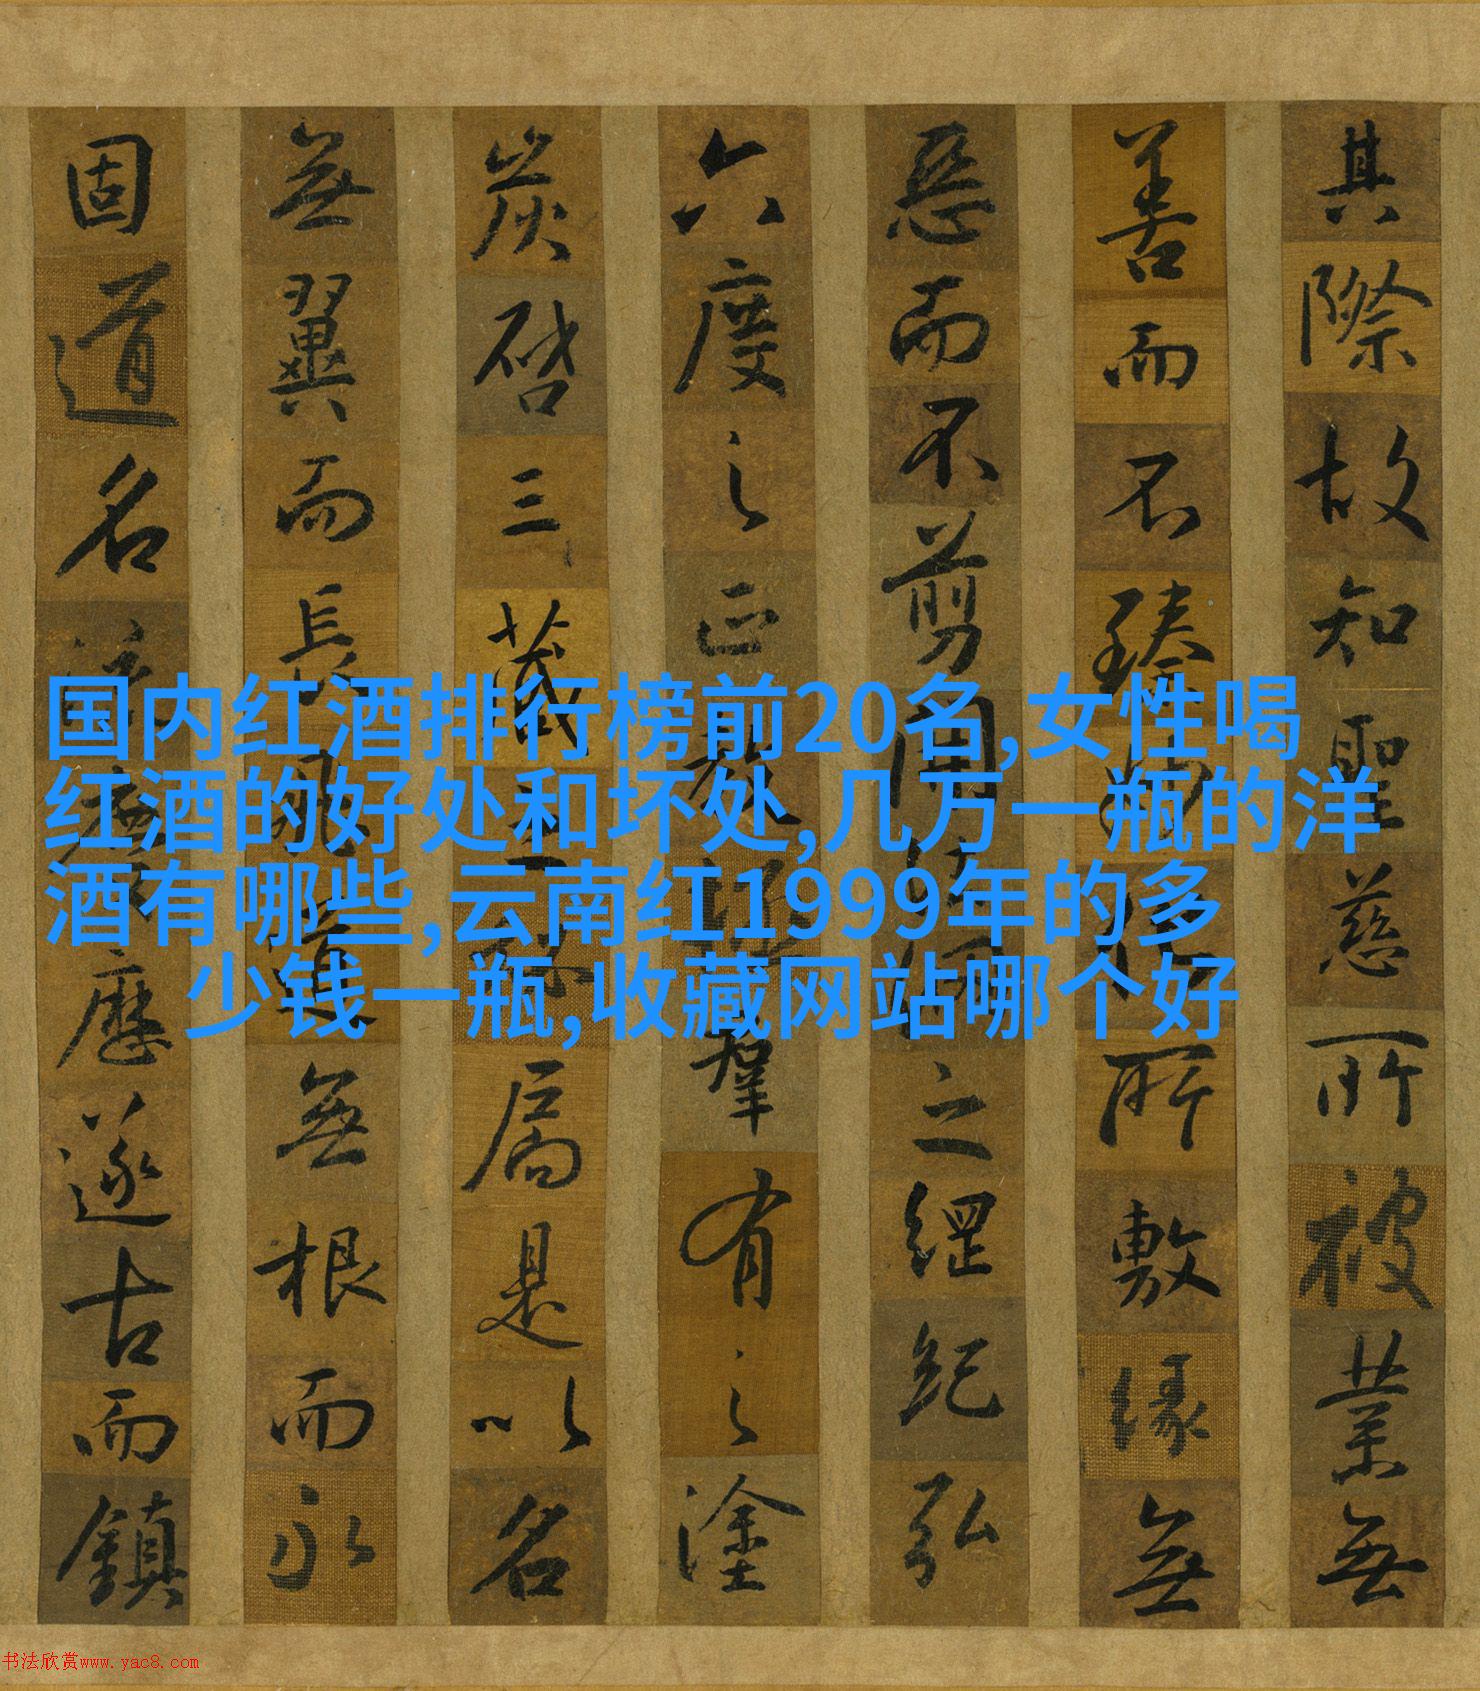 其際故知聖慈所被業無
善而不臻妙化所敷緣無
惡而不剪開法網之綱紀弘
六度之正教拯羣有之塗
炭啓三藏之秘扃是以名
無翼而長飛道無根而永
固道名流慶歷遂古而鎮
国内红酒排行榜前20名,女性喝
红酒的好处和坏处,几万一瓶的洋
酒有哪些,云南红1999年的多
少钱一瓶,收藏网站哪个好
书法欣赏www.yac8.com